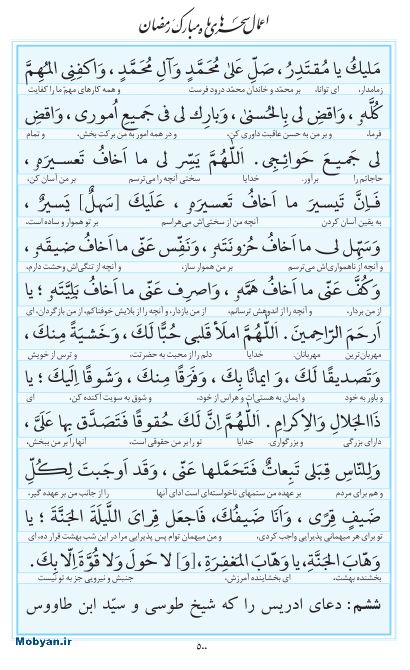 اعمال سحرهای ماه مبارک رمضان
مَلیكُ یا مُقتَدِرُ، صَلِّ عَلیٰ مُحَمَّدٍ وَآلِ مُحَمَّدٍ، وَاکفِنِی المُهِمَّ
زمامدار، ای توانا، بر محمّد و خاندان محمّد درود فرست و همه کارهای مهمّ ما را کفایت
کُلَّهُ، وَاقضِ لی بِالحُسنیٰ، وَبارِك لی فی جَمیعِ اُموری، وَاقضِ
فرما، و بر من به حسن عاقبت داوری کن، و در همه امور به من برکت بخش، و تمام
لی جَمیعَ حَوائِجی. اَللّٰهُمَّ یَسِّر لی ما اَخافُ تَعسیرَهُ،
حاجاتم را برآور. خدایا سختی آنچه را می‌ترسم بر من آسان کن،
فَاِنَّ تَیسیرَ ما اَخافُ تَعسیرَهُ، عَلَیكَ [سَهلٌ] یَسیرٌ،
به یقین آسان کردن آنچه من از سختی‌اش می‌هراسم بر تو هموار و ساده است،
وَسَهِّل لی ما اَخافُ حُزونَتَهُ، وَنَفِّس عَنّی ما اَخافُ ضیقَهُ،
و آنچه از ناهمواری‌اش می‌ترسم بر من هموار ساز، و آنچه از تنگی‌اش وحشت دارم،
وَکُفَّ عَنّی ما اَخافُ هَمَّهُ، وَاصرِف عَنّی ما اَخافُ بَلِیَّتَهُ؛ یا
از من بردار، و آنچه را از اندوهش ترسانم، از من بازدار، و آنچه را از بلایش خوفناکم، از من بازگردان، ای
اَرحَمَ الرّاحِمینَ. اَللّٰهُمَّ املَأ قَلبی حُبًّا لَكَ، وَخَشیَةً مِنكَ،
مهربان‌ترین مهربانان. خدایا دلم را از محبت به حضرتت، و ترس از خویش
وَتَصدیقًا لَكَ، وَ ایمانًا بِكَ، وَفَرَقًا مِنكَ، وَشَوقًا اِلَیكَ؛ یا
و باور به خود و ایمان به هستی‌ات و هراس از خود، و شوق به سویت آکنده کن، ای
ذَا الجَلالِ وَالاِکرامِ. اَللّٰهُمَّ اِنَّ لَكَ حُقوقًا فَتَصَدَّق بِها عَلَیَّ،
دارای بزرگی و بزرگواری. خدایا تو را بر من حقوقی است، آنها را بر من ببخش،
وَلِلنّاسِ قِبَلی تَبِعاتٌ فَتَحَمَّلها عَنّی، وَقَد اَوجَبتَ لِکُلِّ
و هم برای مردم بر عهده من ستمهای ناخواسته‌ای است ادای آنها را از جانب من بر عهده گیر،
ضَیفٍ قِرًی، وَاَنَا ضَیفُكَ، فَاجعَل قِرایَ اللَّیلَةَ الجَنَّةَ؛ یا
تو برای هر میهمانی پذیرایی واجب کردی، و من میهمان توام پس پذیرایی مرا در این شب بهشت قرار ده، ای
وَهّابَ الجَنَّةِ، یا وَهّابَ المَغفِرَةِ، [وَ] لا حَولَ وَلا قُوَّةَ اِلّا بِكَ.
بخشنده بهشت، ای بخشاینده آمرزش، جنبش و نیرویی جز به تو نیست.
ششم: دعای ادریس را که شیخ طوسی و سیّد ابن طاووس
Mobyan.ir
۵۰۰